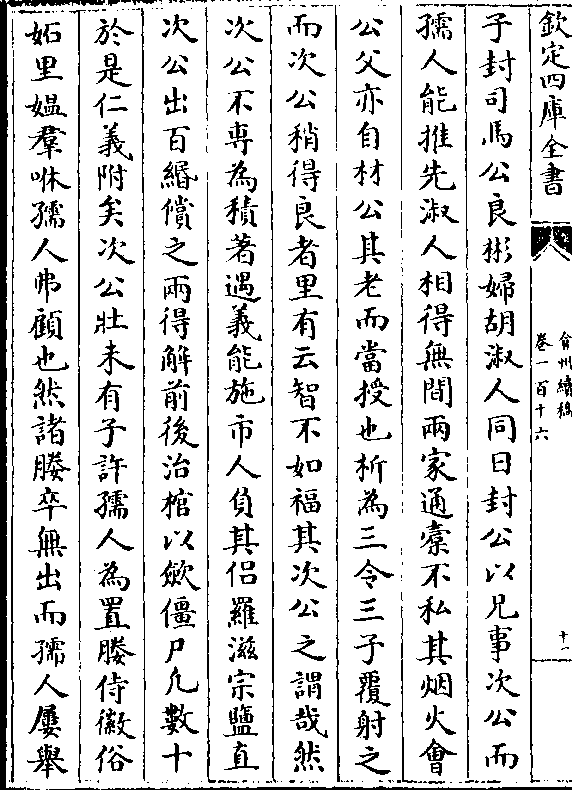 欽定四庫全書
弇州續稿
卷一百十六
十一
子封司馬公良彬婦胡淑人同日封公以兄事次公而
孺人能推先淑人相得無間兩家通橐不私其烟火會
公父亦自材公其老而當授也析為三令三子覆射之
而次公稍得良者里有云智不如福其次公之謂哉然
次公不専為積著遇義能施市人負其侣羅滋宗鹽直
次公出百緡償之兩得解前後治棺以歛僵尸凡數十
於是仁義附矣次公壯未有子許孺人為置媵侍徽俗
妬里媪羣咻孺人弗顧也然諸媵卒無出而孺人屢舉